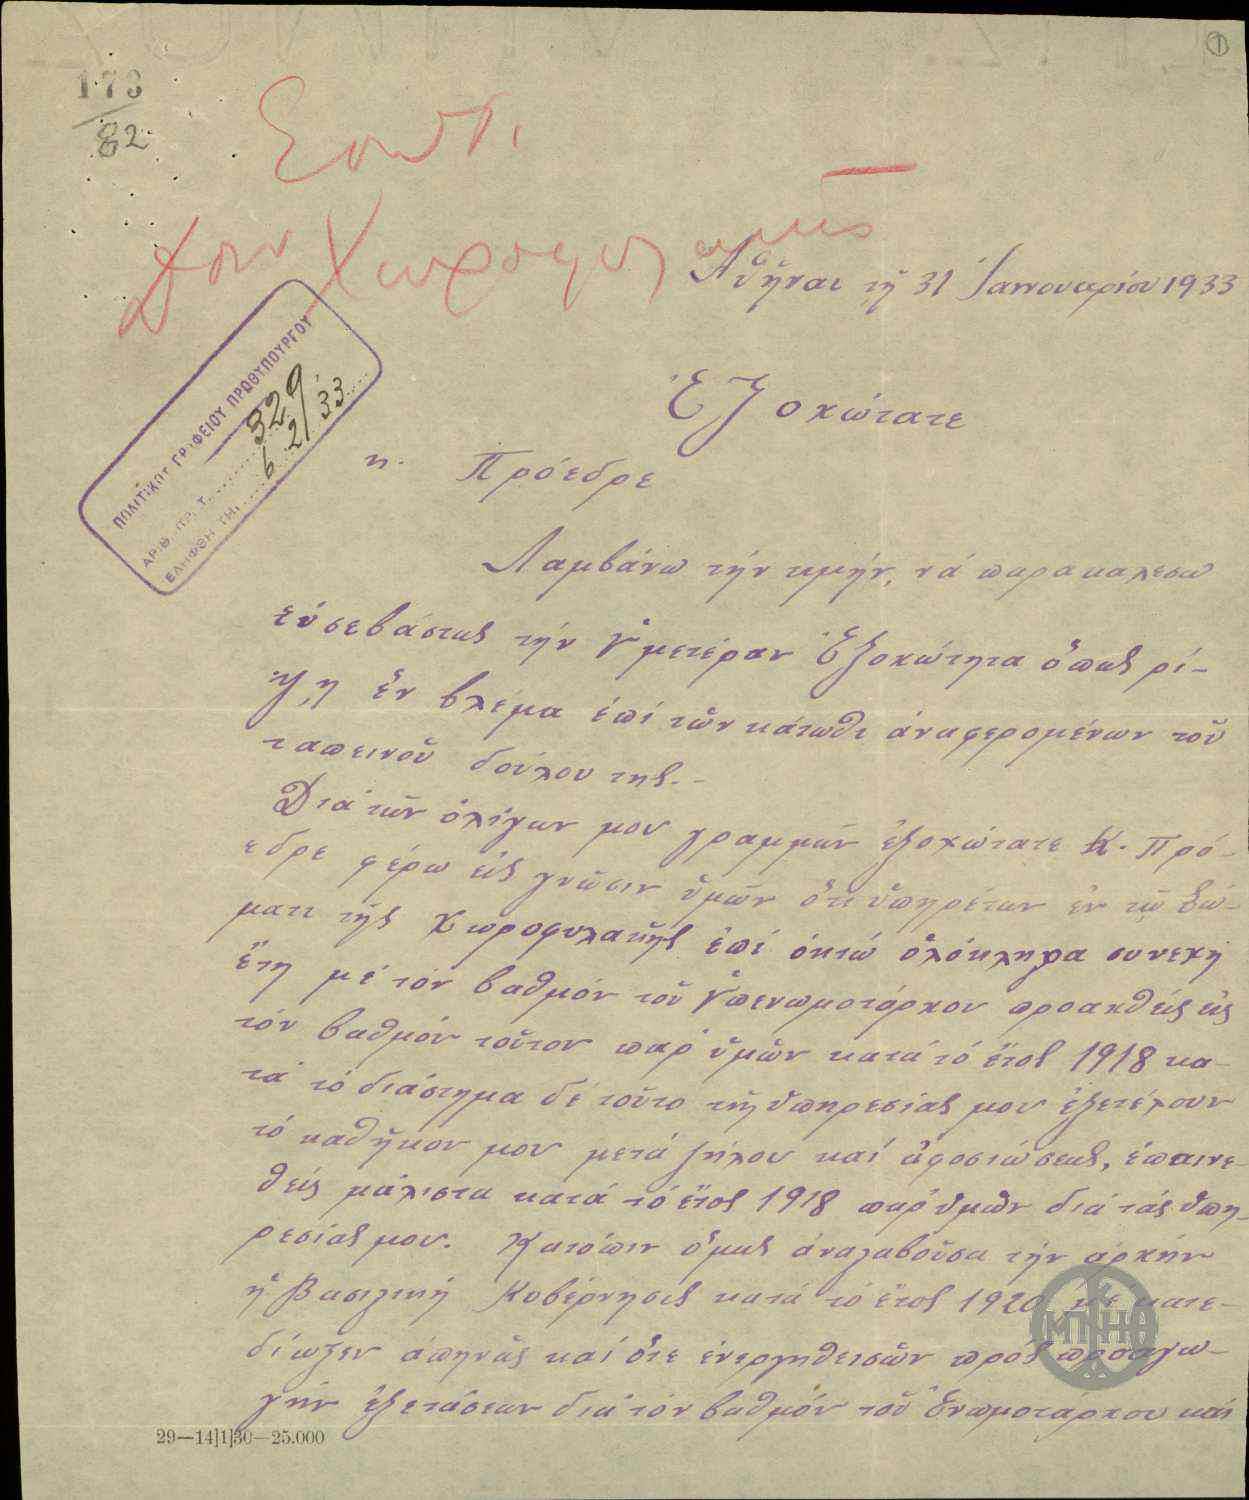 173
82
①
Συντ.
Χωροφυλακῆς
Ἀθῆναι τῇ 31 Ἰανουαρίου 1933
ΠΟΛΙΤΙΚΟΥ ΓΡΑΦΕΙΟΥ ΠΡΩΘΥΠΟΥΡΓΟΥ
ΑΡΙΘ. ΠΡ. Τ. 329
ΕΛΗΦΘΗ ΤΗ 6/2/33
Ἐξοχώτατε
κ. Πρόεδρε
Λαμβάνω τήν τιμήν, νά παρακαλεσω
εὐσεβάστως τήν Ὑμετέραν Ἐξοχώτητα ὅπως ρί-
ψῃ ἕν βλέμα ἐπί τῶν κάτωθι ἀναφερομένων τοῦ
ταπεινοῦ δούλου της.-
Διά τῶν ὀλίγων μου γραμμῶν ἐξοχώτατε Κ. Πρό-
εδρε φέρω εἰς γνῶσιν ὑμῶν ὅτι ὑπηρέτων ἐν τῷ Σώ-
ματι τῆς Χωροφυλακῆς ἐπί ὀκτώ ὁλόκληρα συνεχῆ
ἔτη μέ τόν βαθμόν τοῦ Ὑπενωμοτάρχου προαχθείς εἰς
τόν βαθμόν τοῦτον παρ' ὑμῶν κατά τό ἔτος 1918 κα-
τά τό διάστημα δέ τοῦτο τῆς ὑπηρεσίας μου ἐξετέλουν
τό καθῆκον μου μετά ζήλου καί ἀφοσιώσεως, ἐπαινε-
θείς μάλιστα κατά τό ἔτος 1918 παρ' ὑμῶν διά τάς ὑπη-
ρεσίας μου. Κατόπιν ὅμως ἀναλαβοῦσα τήν ἀρχήν
ἡ Βασιλική Κυβέρνησις κατά τό ἔτος 1920 με κατε-
δίωξεν απηνῶς καί ὅτε ἐνεργηθεισῶν πρός προαγω-
γήν ἐξετάσεων διά τόν βαθμόν τοῦ Ἐνωμοτάρχου καί
ΜΠΗΑ
29—14]1]30—25.000